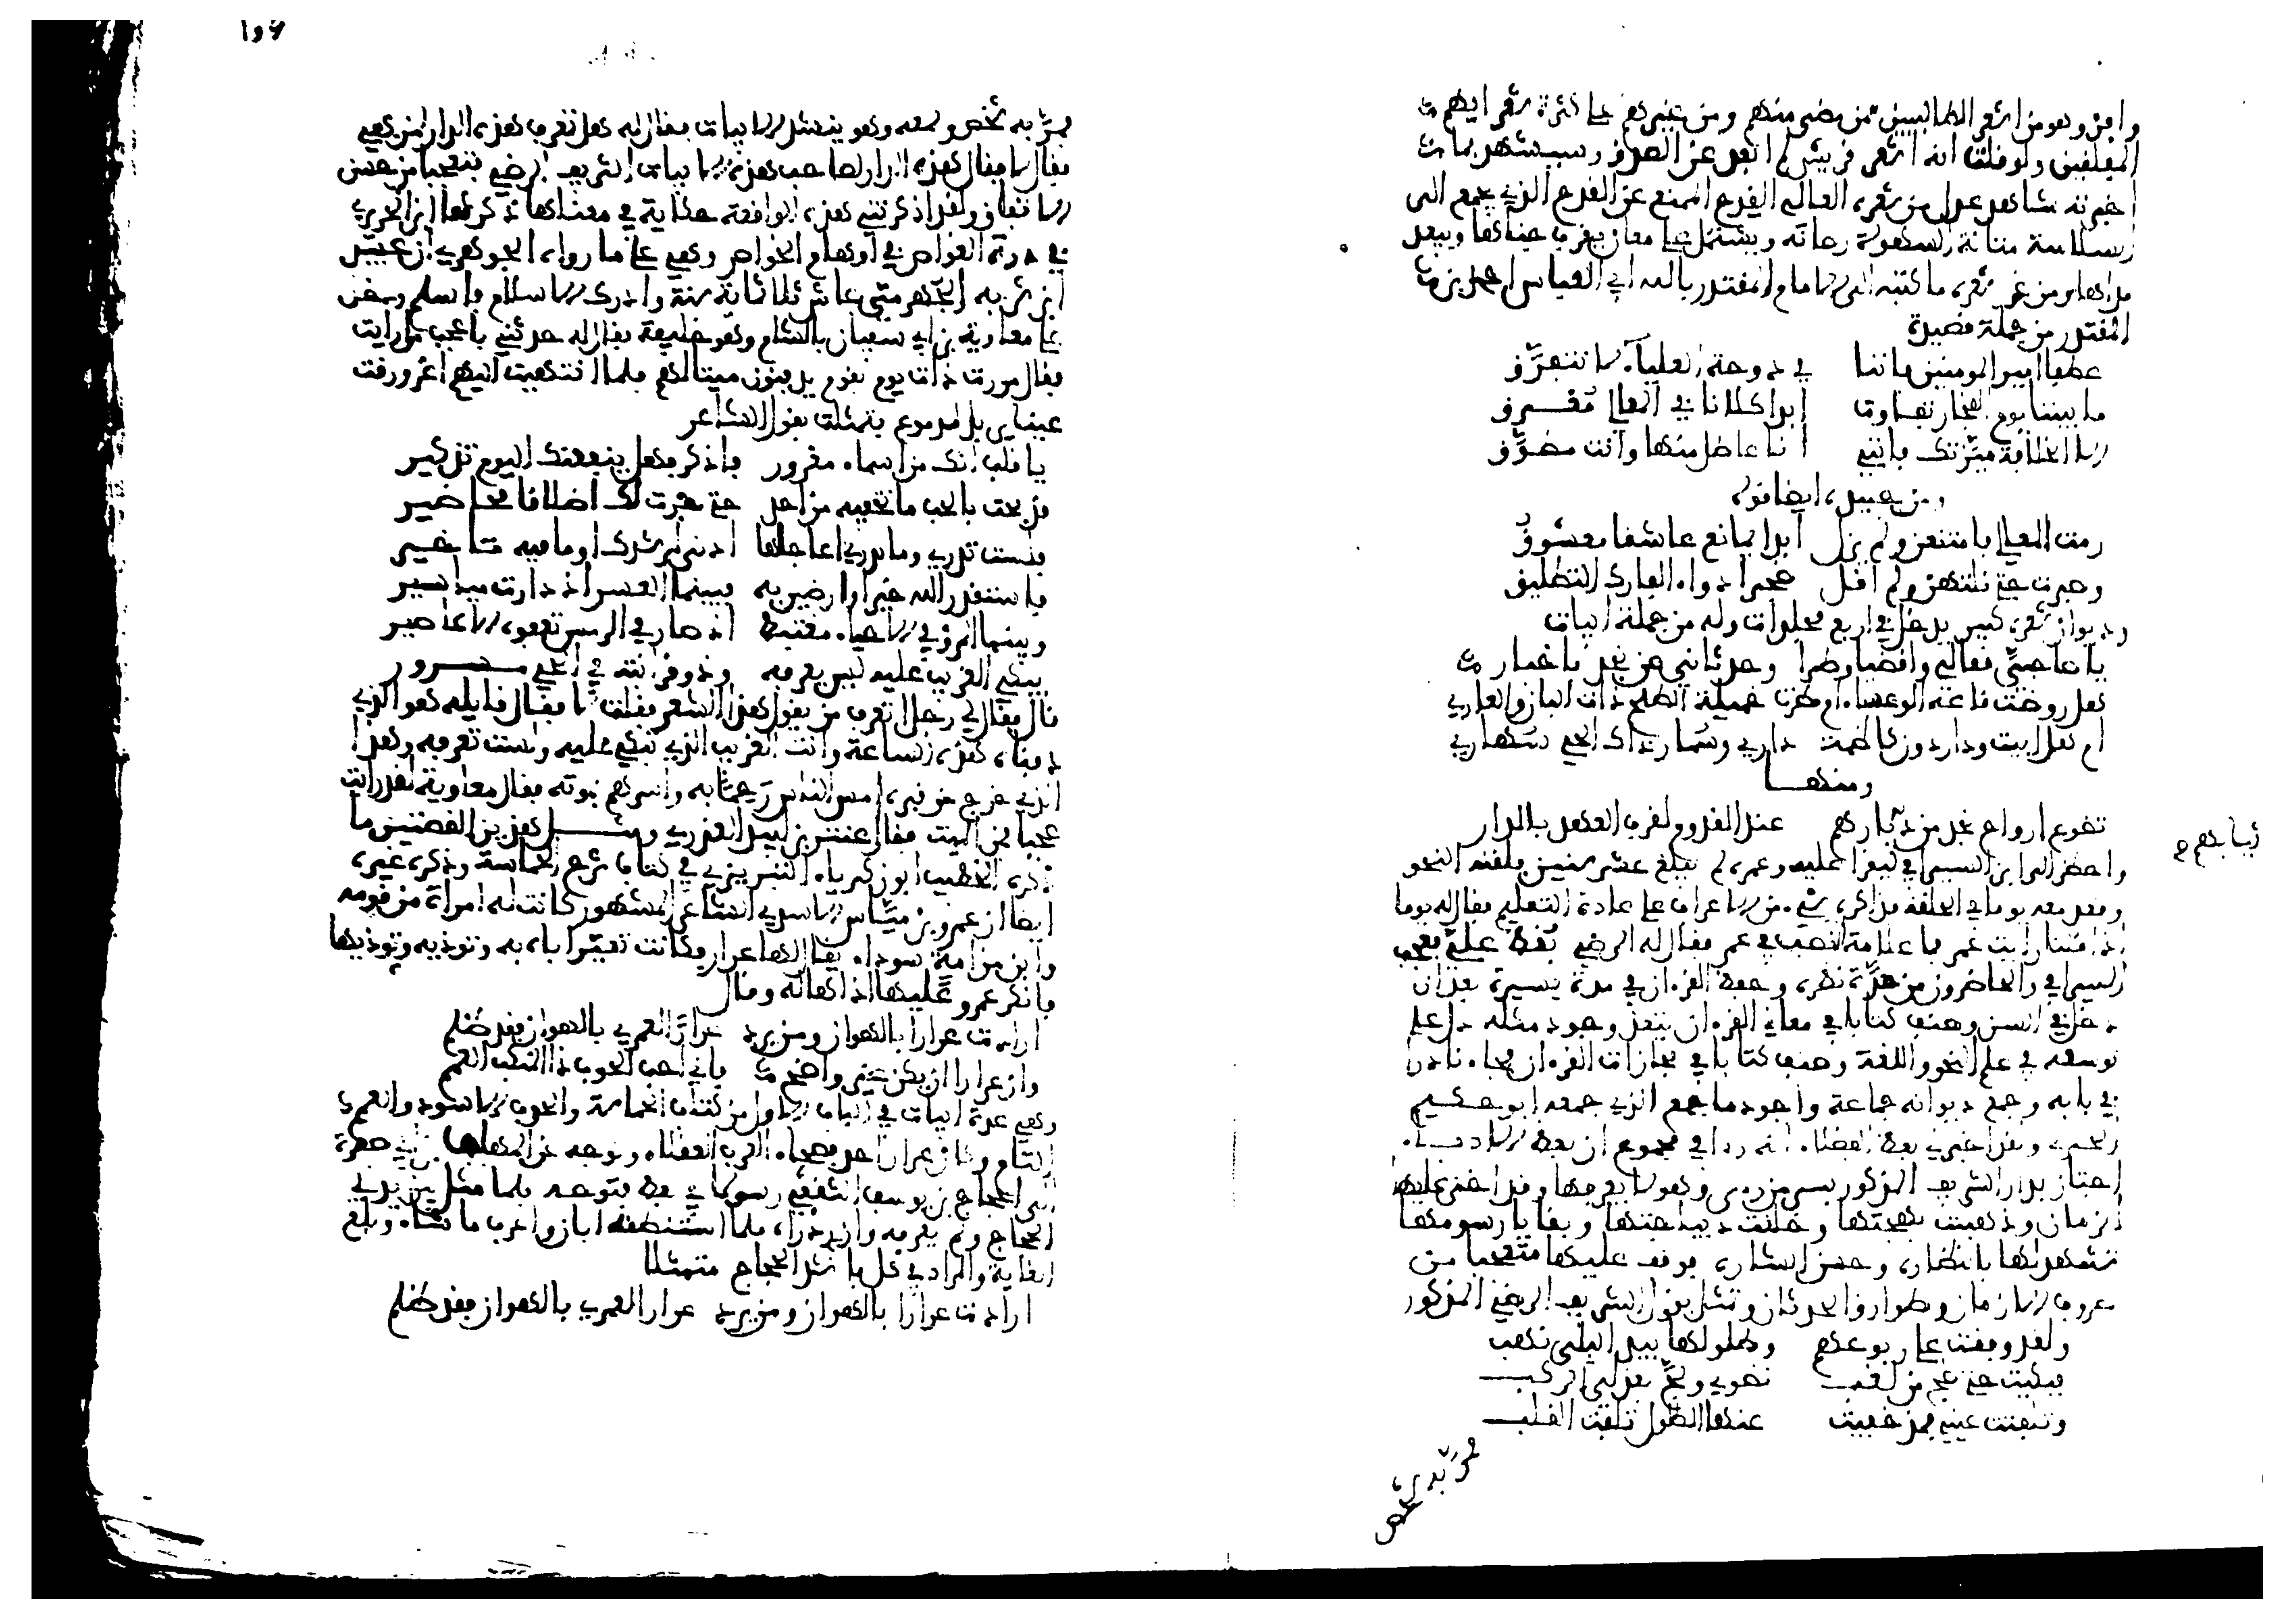 وافر وهو من اشعر الطالبيين من مضى منهم ومن غبر على كثرة شعرايهم
المفلقين ولو قلت انه اشعر قريش لم ابعد عن الصدق وسيشهد بما
اخبرته شاهد عدل من شعره العالي القدح الممتنع عن القدح الذي يجمع الى
السلاسة متانة والسهولة رصانة ويشتمل على معان يقرب جناها ويبعد
مداها ومن غرر شعره ما كتبه الى الامام القادر بالله ابي العباس احمد بن
المقتدر من جملة قصيدة
عطفا امير المومنين فاننا في دوحة العلياء لا نتفرق
ما بيننا يوم الفخار تفاوت ابدا كلانا في المعالي معرق
الا الخلافة ميزتك فانني انا عاطل منها وانت مطوق
ومن جيده ايضا قوله
رمت المعالي فامتنعن ولم يزل ابدا يمانع عاشقا معشوق
وصبرت حتى نلتهن ولم اقل ضجرا دواء الفارك التطليق
وديوان شعره كبير يدخل في اربع مجلدات وله من جملة ابيات
يا صاحبي قفا لي واقضيا وطرا وحدثاني عن نجد باخبار
هل روضت قاعة الوعساء ام مطرت خميلة الطلح ذات البان والغار
ام هل ابيت ودار دون كاظمة داري وسمار ذاك الحي سماري
ومنها
تضوع ارواح نجد من ديارهم عند القدوم لقرب العهد بالدار
ثيابهم ح
واحضر الى ابن السيرافي ليقرا عليه وعمره لم يبلغ عشر سنين فلقنه النحو
وقعد معه يوما في الحلقة فذاكره بشيء من الاعراب على عادة التعليم فقال له يوما
اذا قلنا رايت عمر فما علامة النصب في عمر فقال له الرضي بغض علي فعجب
السيرافي والحاضرون من حدة نظره وحفظ القرءان في مدة يسيرة بعد ان
دخل في السن وصنف كتابا في معاني القرءان يتعذر وجود مثله دل على
توسعه في علم النحو واللغة وصنف كتابا في مجازات القرءان فجاء نادرا
في بابه وجمع ديوانه جماعة واجود ما جمع الذي جمعه ابو حكيم
الخبري ولقد اخبرني بعض الفضلاء انه راى في مجموع ان بعض الادباء
اجتاز بدار الشريف المذكور بسر من راى وهو لا يعرفها وقد اخنى عليها
الزمان وذهبت بهجتها وخلقت ديباجتها وبقايا رسومها
تشهد لها بالنضارة وحسن الشارة فوقف عليها متعجبا من
صروف الزمان وطوارق الحدثان وتمثل بقول الشريف الرضي المذكور
ولقد وقفت على ربوعهم وطلولها بيد البلى نهب
فبكيت حتى ضج من لغب نضوي ولج بعدلي الركب
وتلفتت عيني فمذ خفيت عنها الطلول تلفت القلب
فمر به شخص
١٥٤
فمر به شخص وسمعه وهو ينشد الابيات فقال له هل تعرف هذه الدار لمن هي
فقال لا فقال هذه الدار لصاحب هذه الابيات الشريف الرضي فتعجبا من حسن
الاتفاق ولقد اذكرتني هذه الواقعة حكاية في معناها ذكرها ابن الحريري
في درة الغواص في اوهام الخواص وهي على ما رواه الجوهري ان عبيد
ابن شربة الجرهمي عاش ثلاثماية سنة وادرك الاسلام فاسلم ودخل
على معاوية بن ابي سفيان بالشام وهو خليفة فقال له حدثني باعجب ما رايت
فقال مررت ذات يوم بقوم يدفنون ميتا لهم فلما انتهيت اليهم اغرورقت
عيناي بالدموع فتمثلت بقول الشاعر
يا قلب انك من اسماء مغرور فاذكر وهل ينفعنك اليوم تذكير
قد بحت بالحب ما تخفيه من احد حتى جرت لك اطلاقا محاضير
فلست تدري وما تدري اعاجلها ادنى لرشدك او ما فيه تاخير
فاستقدر الله خيرا وارضين به فبينما العسر اذ دارت مياسير
وبينما المرء في الاحياء مغتبط اذ صار في الرمس تعفوه الاعاصير
يبكي الغريب عليه ليس يعرفه وذو قرابته في الحي مسرور
قال فقال لي رجل اتعرف من يقول هذا الشعر فقلت لا فقال قايله هو الذي
دفناه هذه الساعة وانت الغريب الذي تبكي عليه ولست تعرفه وهذا
الذي خرج من قبره امس الناس رحما به واسرهم بموته فقال معاوية لقد رايت
عجبا فمن الميت فقال عنتر بن لبيد العذري ومثل هذين القضيتين ما
ذكره الخطيب ابو زكرياء التبريزي في كتاب شرح الحماسة وذكره غيره
ايضا ان عمرو بن شاس الاسدي الشاعر المشهور كانت له امراة من قومه
وابن من امة سوداء يقال لها عرار فكانت تعير اباه به وتوذيه ويوذيها
فانكر عمرو عليها اذاها له وقال
ارادت عرارا بالهوان ومن يرد عرارا لعمري بالهوان فقد ظلم
وان عرارا ان يكن غير واضح فاني احب الجون ذا المنكب العمم
وهي عدة ابيات في الباب الاول من كتاب الحماسة والجون الاسود والعمم
التام وكان عرار احد فصحاء العرب العقلاء وتوجه عن المهلب بن ابي صفرة
الى الحجاج بن يوسف الثقفي رسولا في بعض فتوحه فلما مثل بين يدي
الحجاج ولم يعرفه وازدراه فلما استنطقه ابان واعرب ما شاء وبلغ
الغاية والمراد في كل ما سئل فانشد الحجاج متمثلا
ارادت عرارا بالهوان ومن يرد عرارا لعمري بالهوان فقد ظلم